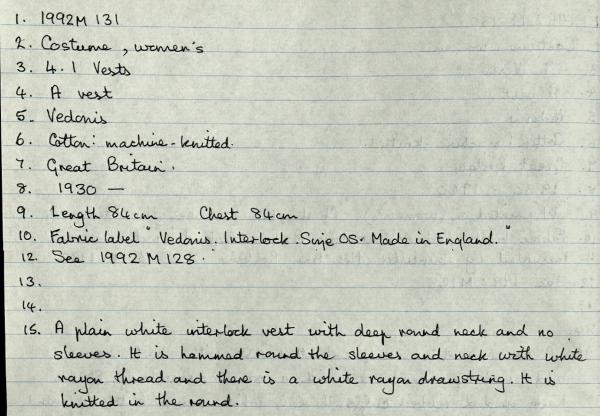 1. 1992M 131
2. Costume, women's
3. 4.1 Vests
4. A vest
5. Vedonis
6. Cotton: machine-knitted.
7. Great Britain.
8. 1930 —
9. Length 84cm Chest 84cm
10. Fabric label "Vedonis. Interlock. Size OS. Made in England."
12. See 1992 M 128.
13.
14.
15. A plain white interlock vest with deep round neck and no
sleeves. It is hemmed round the sleeves and neck with white
rayon thread and there is a white rayon drawstring. It is
knitted in the round.